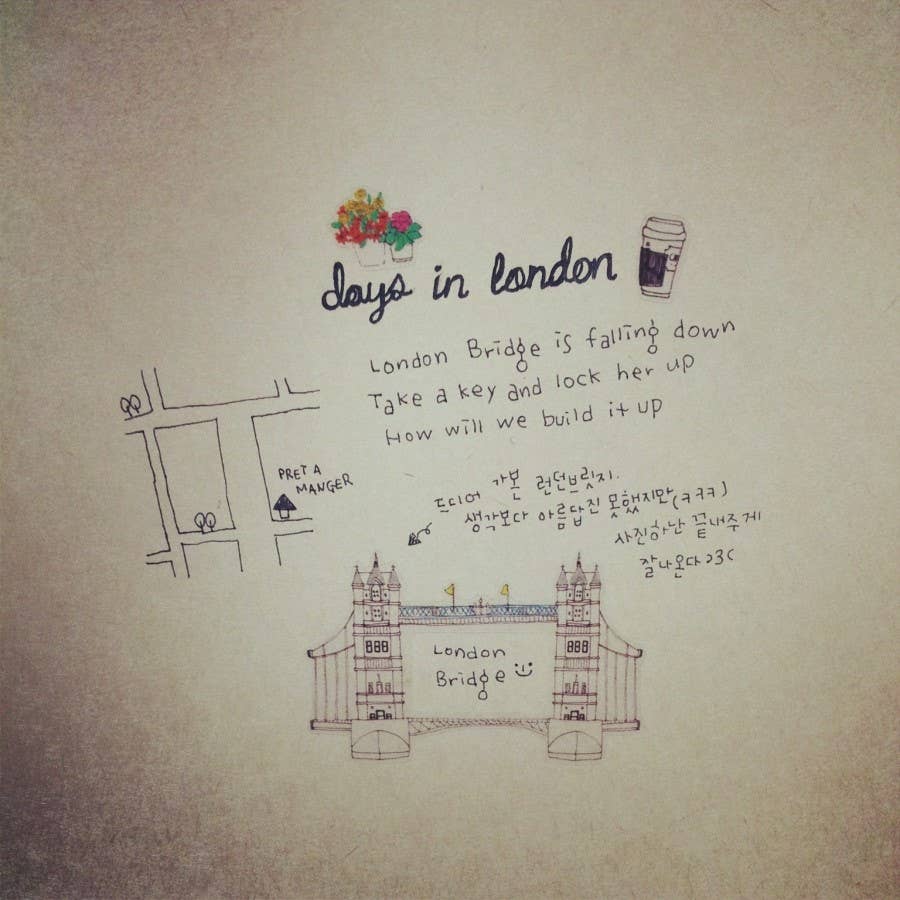 days in london
London Bridge is falling down
Take a key and lock her up
How will we build it up
PRET A
MANGER
드디어 가본 런던브릿지.
생각보다 아름답진 못했지만(ㅋㅋㅋ)
사진하난 끝내주게
잘나온다>3<
London
Bridge